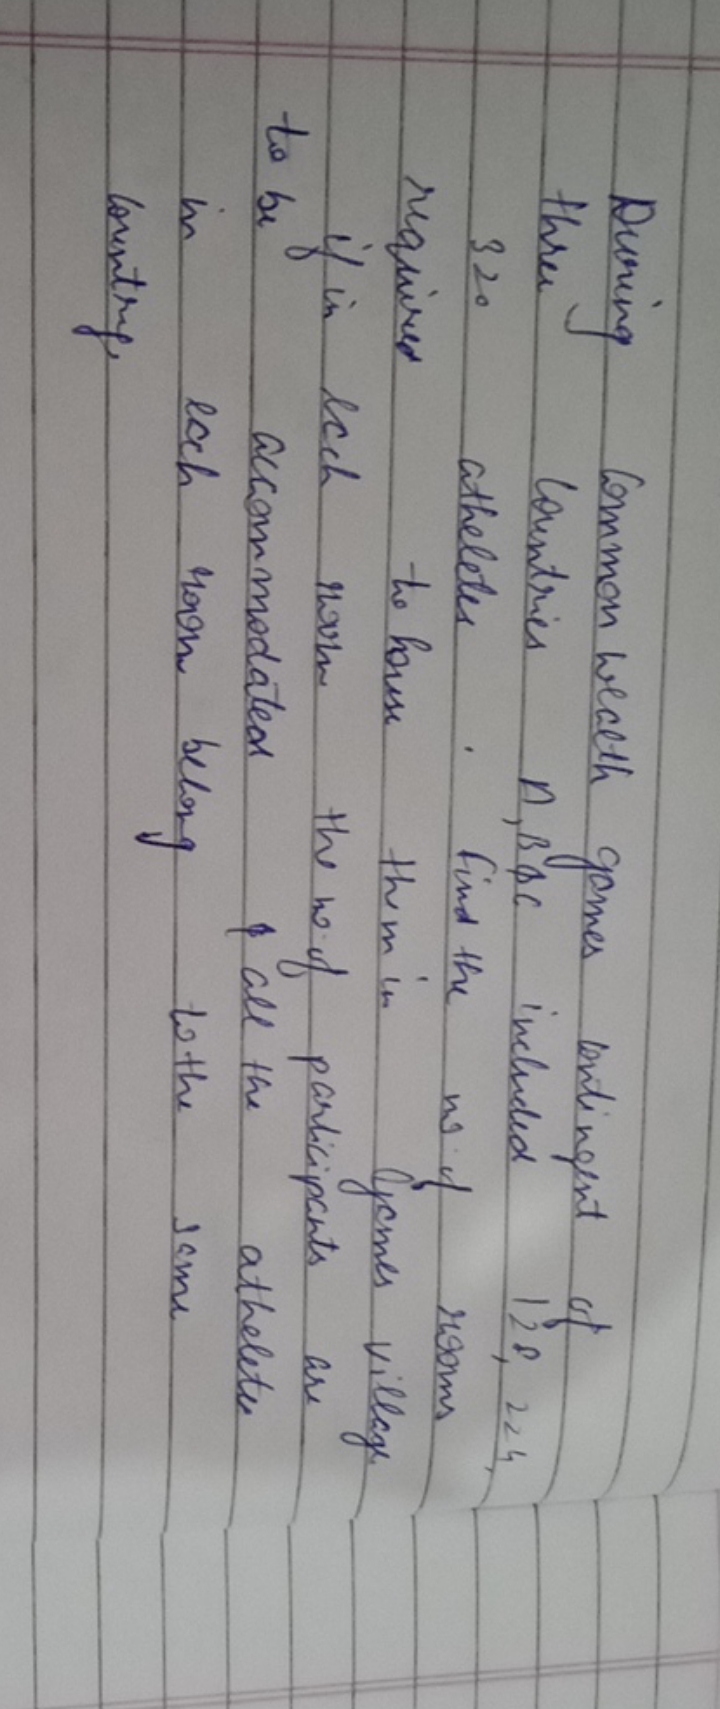 During Commonwealth games contingent of
three countries A, B & C included 128, 224,
320 atheletes. find the no. of rooms
required to house them in Games village
if in each room the no. of participants are
to be accommodated & all the atheletes
in each room belong to the same
country.